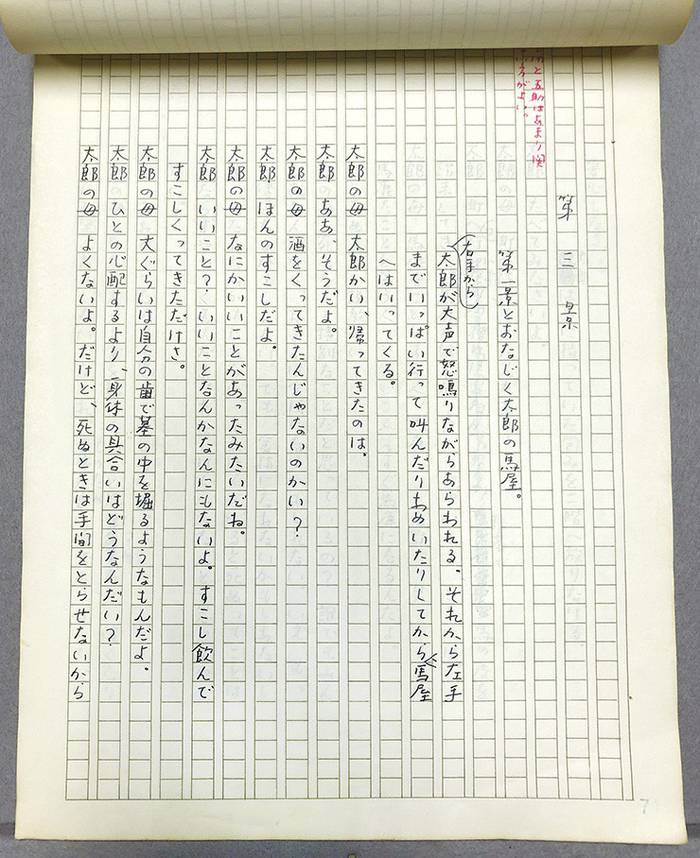 と五助はあまり
方がよい。
第三景
第一景とおなじく太郎の馬屋。
右手から
太郎が大声で怒鳴りながらあらわれる、それから左手
までいっぱい行って叫んだりわめいたりしてから馬屋
へはいってくる。
太郎の母 太郎かい、帰ってきたのは。
太郎 ああ、そうだよ。
太郎の母 酒をくってきたんじゃないのかい?
太郎 ほんのすこしだよ。
太郎の母 なにかいいことがあったみたいだね。
太郎 いいこと?いいことなんかなんにもないよ。すこし飲んで
すこしくってきただけさ。
太郎の母 大ぐらいは自分の歯で墓の中を堀るようなもんだよ。
太郎 ひとの心配するより、身体の具合いはどうなんだい?
太郎の母 よくないよ。だけど、死ぬときは手間をとらせないから
7